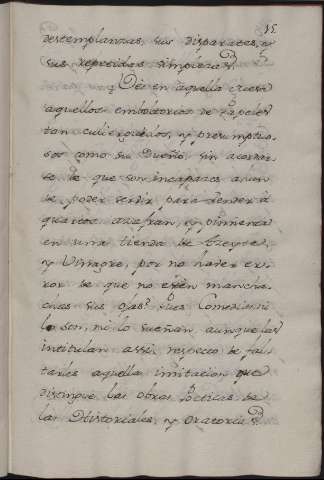 15
destemplanzas, sus disparates, y
sus repetidas simplezas.
Dèxen aquella
aquellos embadorios de Papeles
tan culierguidos, y presumptuo-
sos como su Dueño, sin acordar-
se de que son incapazes aun
de poder servir para vender à
quartos azafran, y pimienta
en una tienda de Azeyte,
y Vinagre, por no haver
de que no estèn mancha-
das sus ojas. Pues Comedias ni
lo son, ni lo sueñan, aunque las
intitulan assi, respecto de fal-
tarles aquella imitacion que
distingue las obras Poeticas de
las Historiales, y Oratorias.